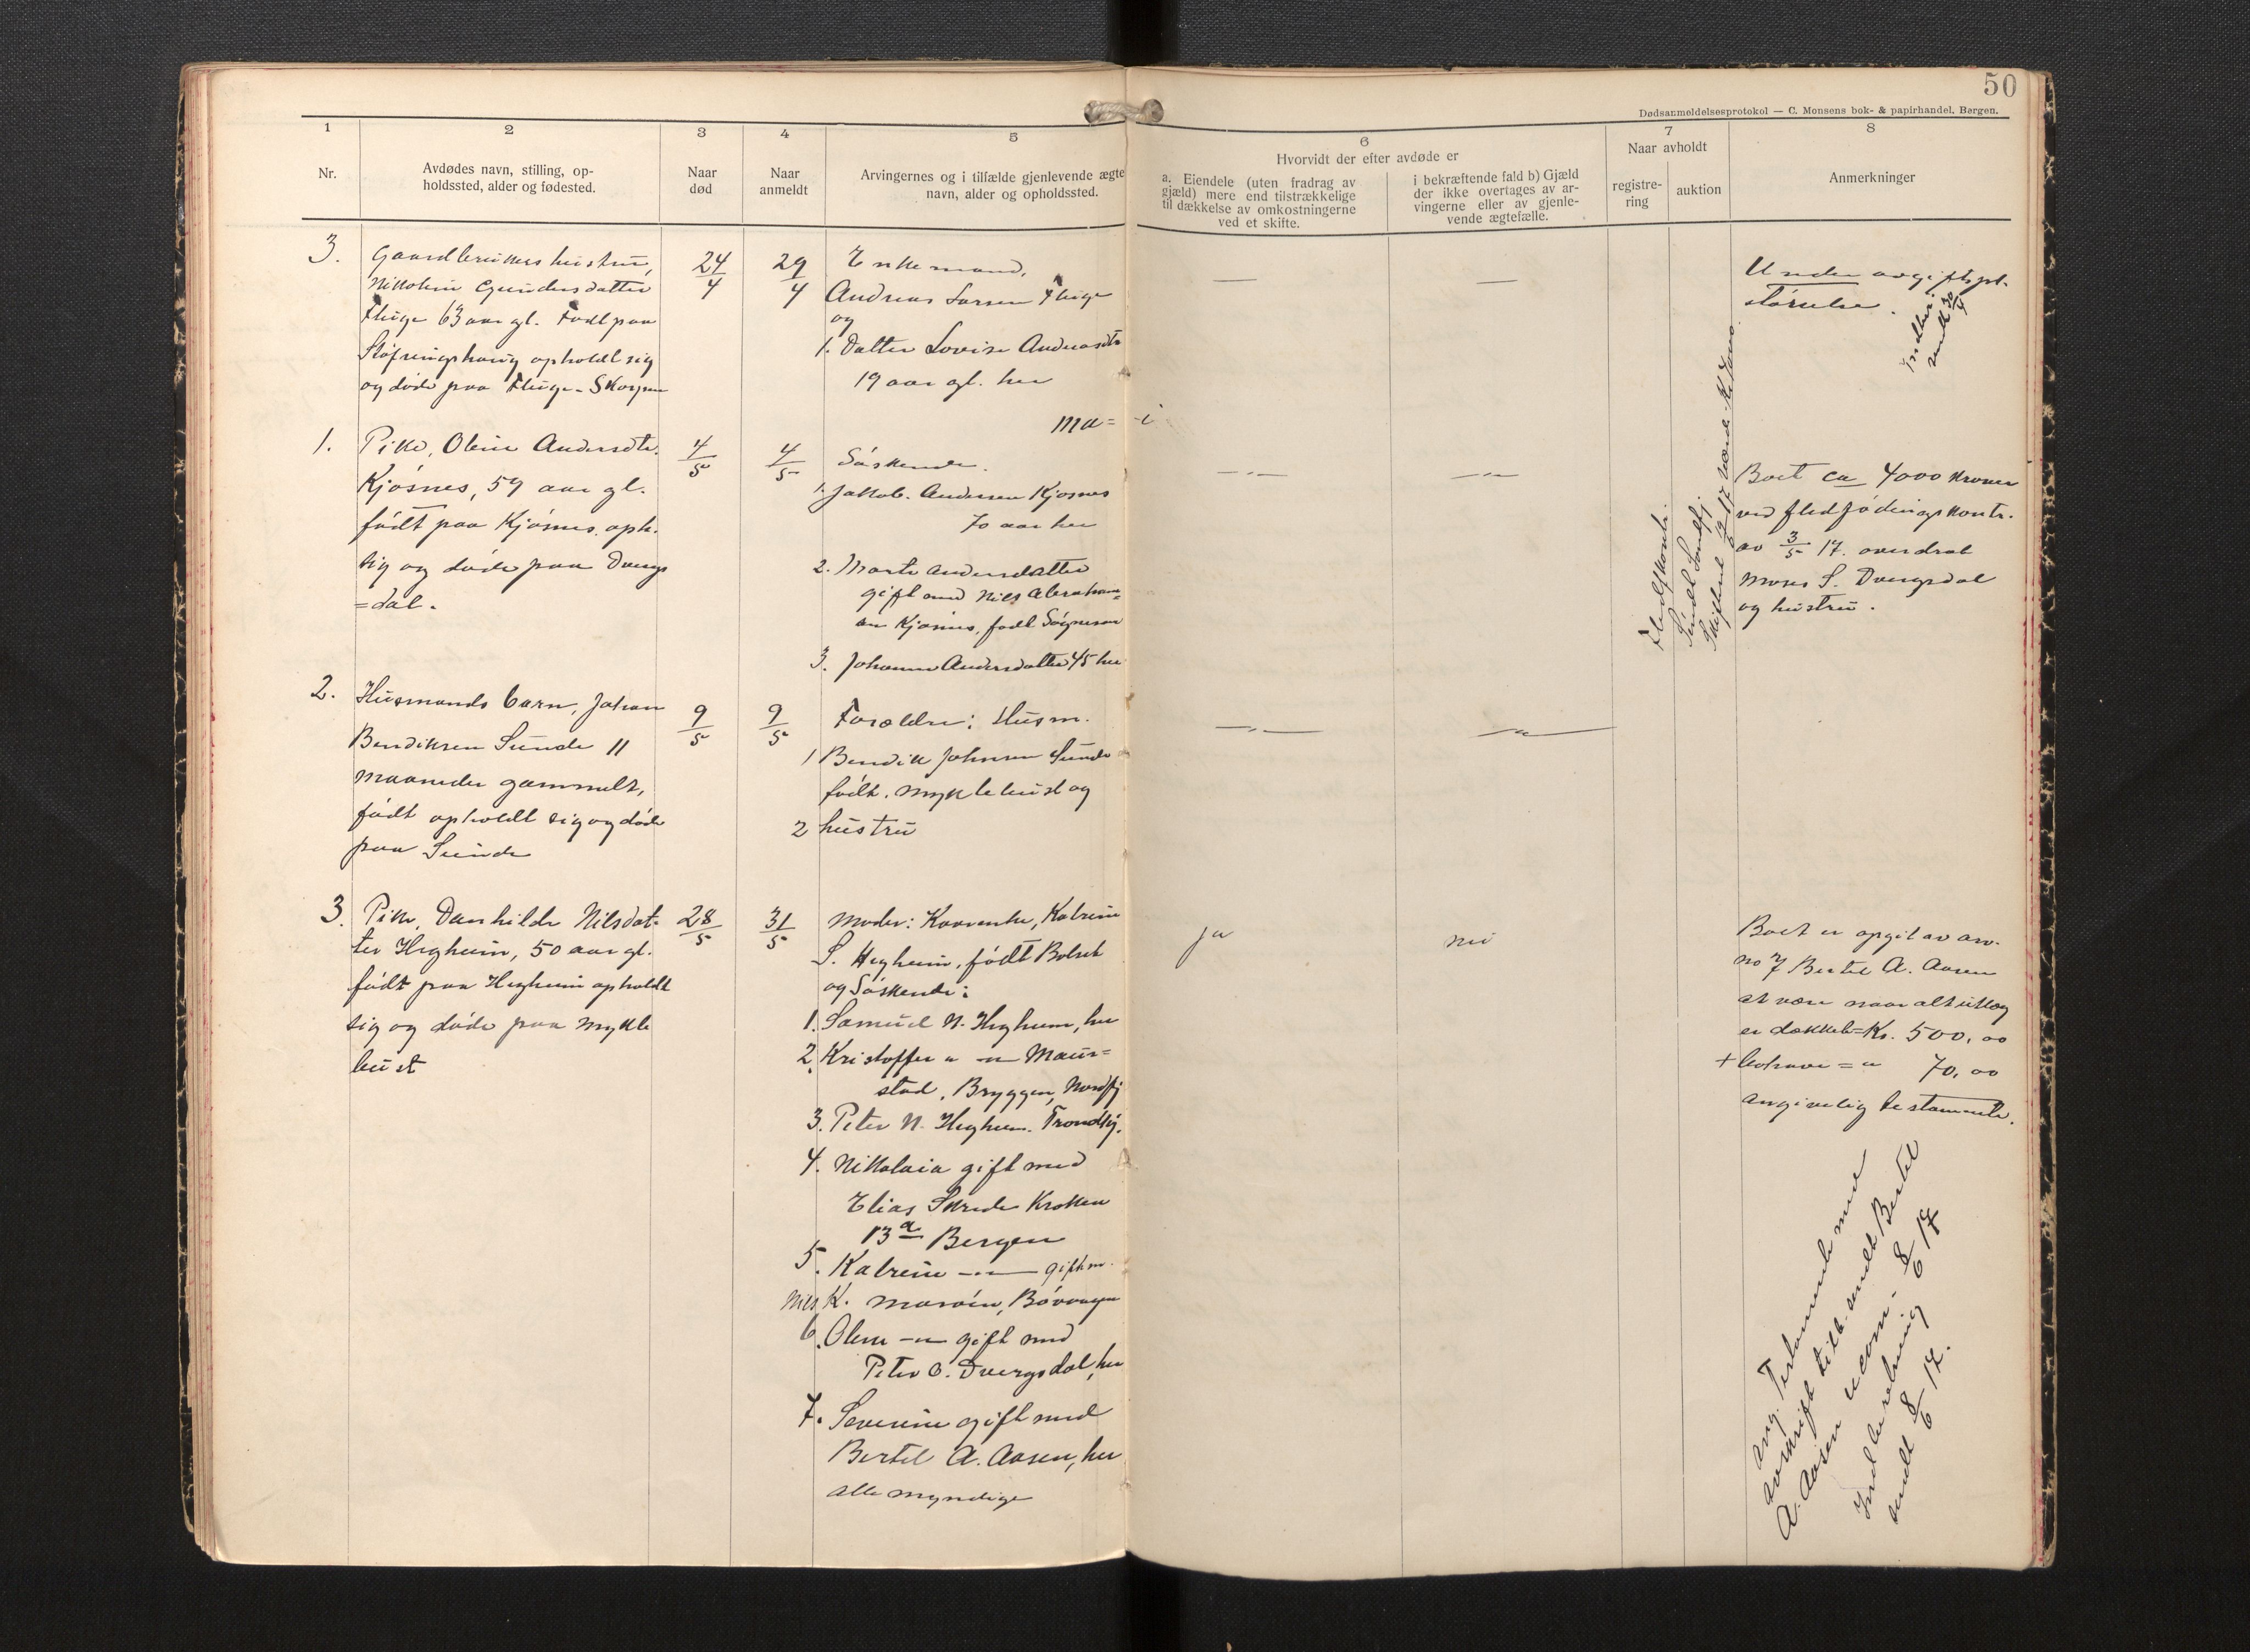 50
Dødsanmeldelsesprotokol — C. Monsens bok- & papirhandel, Bergen.
1
Nr.
2
Avdødes navn, stilling, op-
holdssted, alder og fødested.
3
Naar
død
4
Naar
anmeldt
5
Arvingernes og i tilfælde gjenlevende ægte
navn, alder og opholdssted.
6
Hvorvidt der efter avdøde er
a. Eiendele (uten fradrag av
gjæld) mere end tilstrækkelige
til dækkelse av omkostningerne
ved et skifte.
i bekræftende fald b) Gjæld
der ikke overtages av ar-
vingerne eller av gjenle-
vende ægtefælle.
7
Naar avholdt
registre-
ring
auktion
8
Anmerkninger
3.
Gaardbrukers hustru,
Nikoline Gundersdatter
Fluge 63 aar gl. Født paa
Støfringshaug opholdt sig
og døde paa Fluge - Skorpen
24/4
29/4
Enkemand,
Andreas Larsen Fluge
og
1. Datter Lovise Andreasdtr
19 aar gl. her
— —
Under avgiftspl.
størrelse.
Indber.
sendt 30/4
Ma= i
1.
Pike, Oline Andersdtr.
Kjøsnes, 59 aar gl.
født paa Kjøsnes. oph.
sig og døde paa Dvergs
=dal.
4/5
4/5
Søskende.
1. Jakob. Andersen Kjøsnes
70 aar her
2. Marte Andersdatter
gift med Nils Abraham=
sen Kjøsnes, født Søgnesan
3. Johanne Andersdatter 45 her
—"— —"—
Sundf. Sandfj.
Boet ca 4000 kroner
ved fledfødingskontr.
av 3/5 17. overdrat
Moses S. Dvergsdal
og hustru.
2.
Husmands barn, Johan
Bendiksen Sunde 11
maaneder gammelt,
født opholdt sig og døde
paa Sunde
9/5
9/5
Forældre: Husm.
1 Bendik Johnsen Sunde
født. Myklebust og
2 hustru
—"— —"—
3.
Pike, Danhilde Nilsdat-
ter Hegheim, 50 aar gl.
født paa Hegheim opholdt
sig og døde paa Mykle
bust
28/5
31/5
Moder: Kaarenke, Katrine
S. Hegheim, født Bolset
og Søskende:
1. Samuel N. Hegheim, her
2. Kristoffer " —"— Maur=
stad, Bryggen, Nordfj
3. Peter N. Hegheim. Trondhj.
4. Nikolaia gift med
Elias Skrede Kroken
13a Bergen
5. Katrine —"— gift m.
Nils K. Marøen, Bøvaagen
6. Oline —"— gift med
Peter O. Dvergsdal, her
7. Severine gift med
Bertel A. Aasen, her
alle myndige
ja
nei
Boet er opgit av arv.
no 7 Bertel A. Aasen
at være naar alt utlæg
er dækket = Kr. 500,00
+ løsøre = " 70,00
angivelig testamente.
Ang. Testamente med
avskrift tilb. sendt Bertel
A. Aasen 8/6 17
Indberetning
sendt 8/6 17.